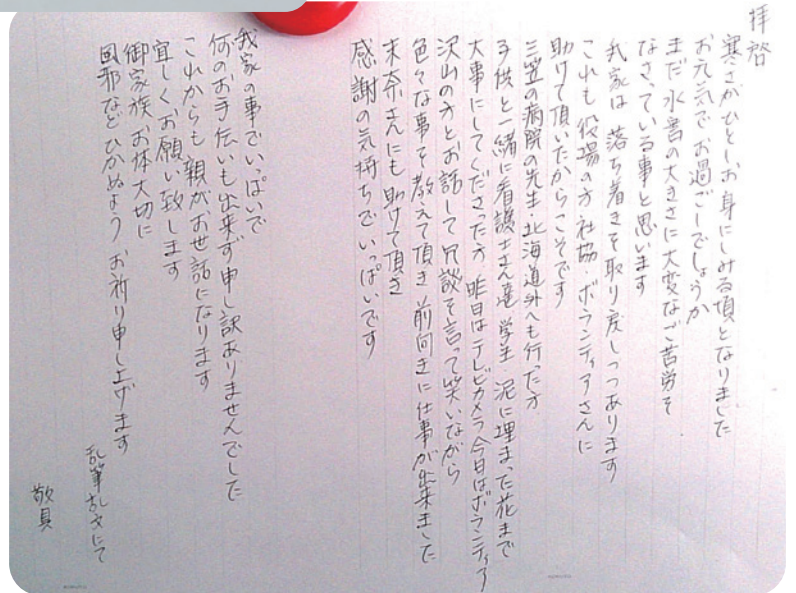 拝啓
寒さがひとしお身にしみる頃となりました
お元気でお過ごしでしょうか
まだ水害の大きさに大変なご苦労を
なさっている事と思います
我家は落ち着きを取り戻しつつあります
これも役場の方、社協・ボランティアさんに
助けて頂いたからこそです
三笠の病院の先生・北海道外へも行った方
子供と一緒に看護士さん達、学生、泥に埋まった花まで
大事にしてくださった方、昨日はテレビカメラ今日はボランティア
沢山の方とお話して冗談を言って笑いながら
色々な事を教えて頂き前向きに仕事が出来ました
末奈さんにも助けて頂き
感謝の気持ちでいっぱいです
我家の事でいっぱいで
何のお手伝いも出来ず申し訳ありませんでした
これからも親がお世話になります
宜しくお願い致します
御家族お体大切に
風邪などひかぬようお祈り申し上げます
乱筆乱文にて
敬具